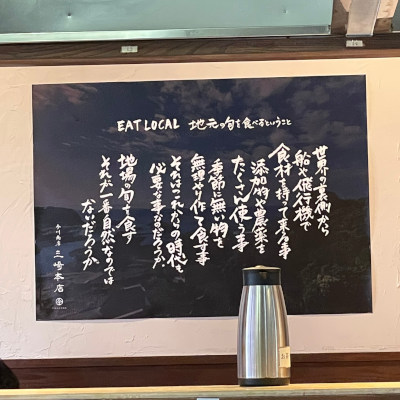 EAT LOCAL 地元の旬を食べるということ
世界の裏側から
船や飛行機で
食材を持って来る事
添加物や農薬を
たくさん使う事
季節に無い物を
無理やり作って食べる事
それはこれからの時代も
必要な事なのだろうか。
地場の旬を食す
それが一番自然なのでは
ないだろうか
三崎本店